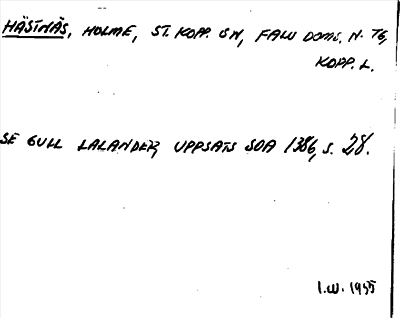 HÄSTNÄS, HOLME, ST. KOPP. SN, FALU DOMS. N. TG,
KOPP. L.
SE GULL LALANDER, UPPSATS SOA 1386, S. 28.
I.W. 1955